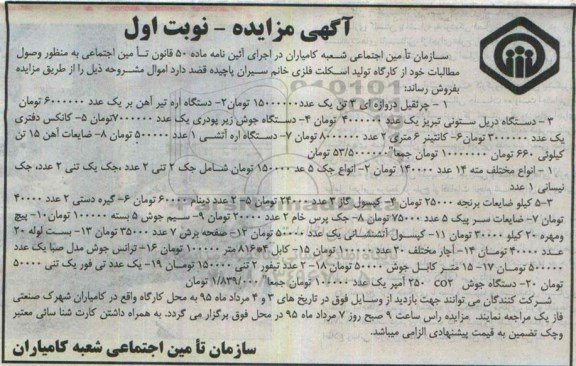 آگهی مزایده - نوبت اول
سازمان تأمین اجتماعی شعبه کامیاران در اجرای آئین نامه ماده ۵۰ قانون تأمین اجتماعی به منظور وصول
مطالبات خود از کارگاه تولید اسکلت فلزی خانم سیران پاچیده قصد دارد اموال مشروحه ذیل را از طریق مزایده
بفروش رساند:
۱ - جرثقیل دروازه ای ۳ تن یک عدد ۱۵۰۰۰۰۰۰ تومان ۲- دستگاه اره تیر آهن بر یک عدد ۶۰۰۰۰۰۰ تومان
۳ - دستگاه دریل ستونی تبریز یک عدد ۴۰۰۰۰۰۰ تومان ۴- دستگاه جوش زیر پودری یک عدد ۷۰۰۰۰۰۰ تومان ۵- کانکس دفتری
یک عدد ۳۰۰۰۰۰۰ تومان ۶- کانتینر ۶ متری ۲ عدد ۸۰۰۰۰۰۰ تومان ۷- دستگاه اره آتشی ۱ عدد ۵۰۰۰۰۰ تومان ۸- ضایعات آهن ۱۵ تن
کیلوئی ۶۶۰ تومان ۱۰۰۰۰۰۰۰ تومان جمعا ۵۳/۵۰۰۰۰۰ تومان
۱ - انواع مختلف مته ۱۴ عدد ۱۴۰۰۰۰ تومان ۲- انواع جک ۵ عدد ۱۵۰۰۰۰ تومان شامل جک ۲ تنی ۲ عدد ،جک یک تنی ۲ عدد، جک
نیسانی ۱ عدد
۳- ۵ کیلو ضایعات برنجه ۲۵۰۰۰ تومان ۴- کپسول گاز ۲ عدد ۲۴۰۰۰ تومان ۵- ۲ عدد دینام ۶۰۰۰۰ تومان ۶- گیره دستی ۲ عدد ۴۰۰۰۰
تومان ۷- ضایعات سر پیک ۵ عدد ۷۵۰۰۰ تومان ۸- جک پرس خام ۲ عدد ۲۰۰۰۰ تومان ۹- سیم جوش ۵ بسته ۱۰۰۰۰۰ تومان ۱۰- پیچ
ومهره ۲۰ کیلو ۳۰۰۰۰ تومان ۱۱- کپسول آتشنشانی یک عدد ۵۰۰۰۰ تومان ۱۲- صفحه برش ۷ عدد ۳۵۰۰۰ تومان ۱۳- بست لوله ۲۰
عدد ۴۰۰۰۰ تومان ۱۴- آچار مختلف ۲۰ عدد ۱۰۰۰۰۰ تومان ۱۵- کابل ۴*۱۶ ۸ متر ۱۰۰۰۰۰ تومان ۱۶- ترانس جوش مدل صبا یک عدد
۵۰۰۰۰۰ تومان ۱۷- ۱۵ متر کابل جوش ۵۰۰۰۰ تومان ۱۸- ۲ عدد تیفور ۲ تنی ۱۵۰۰۰۰ تومان ۱۹- یک عدد تی فور یک تنی ۵۰۰۰۰
تومان ۲۰- دستگاه جوش co۲ ۲۵۰ آمپر یک عدد ۱۰۰۰۰۰ تومان جمعا ۱/۸۳۹/۰۰۰ تومان
شرکت کنندگان می توانند جهت بازدید از وسایل فوق در تاریخ های ۳ و ۴ مرداد ماه ۹۵ به محل کارگاه واقع در کامیاران شهرک صنعتی
فاز یک مراجعه نمایند. مزایده راس ساعت ۹ صبح روز ۷ مرداد ماه ۹۵ در محل فوق برگزار می گردد. به همراه داشتن کارت شناسائی معتبر
وچک تضمین به قیمت پیشنهادی الزامی میباشد.
سازمان تأمین اجتماعی شعبه کامیاران